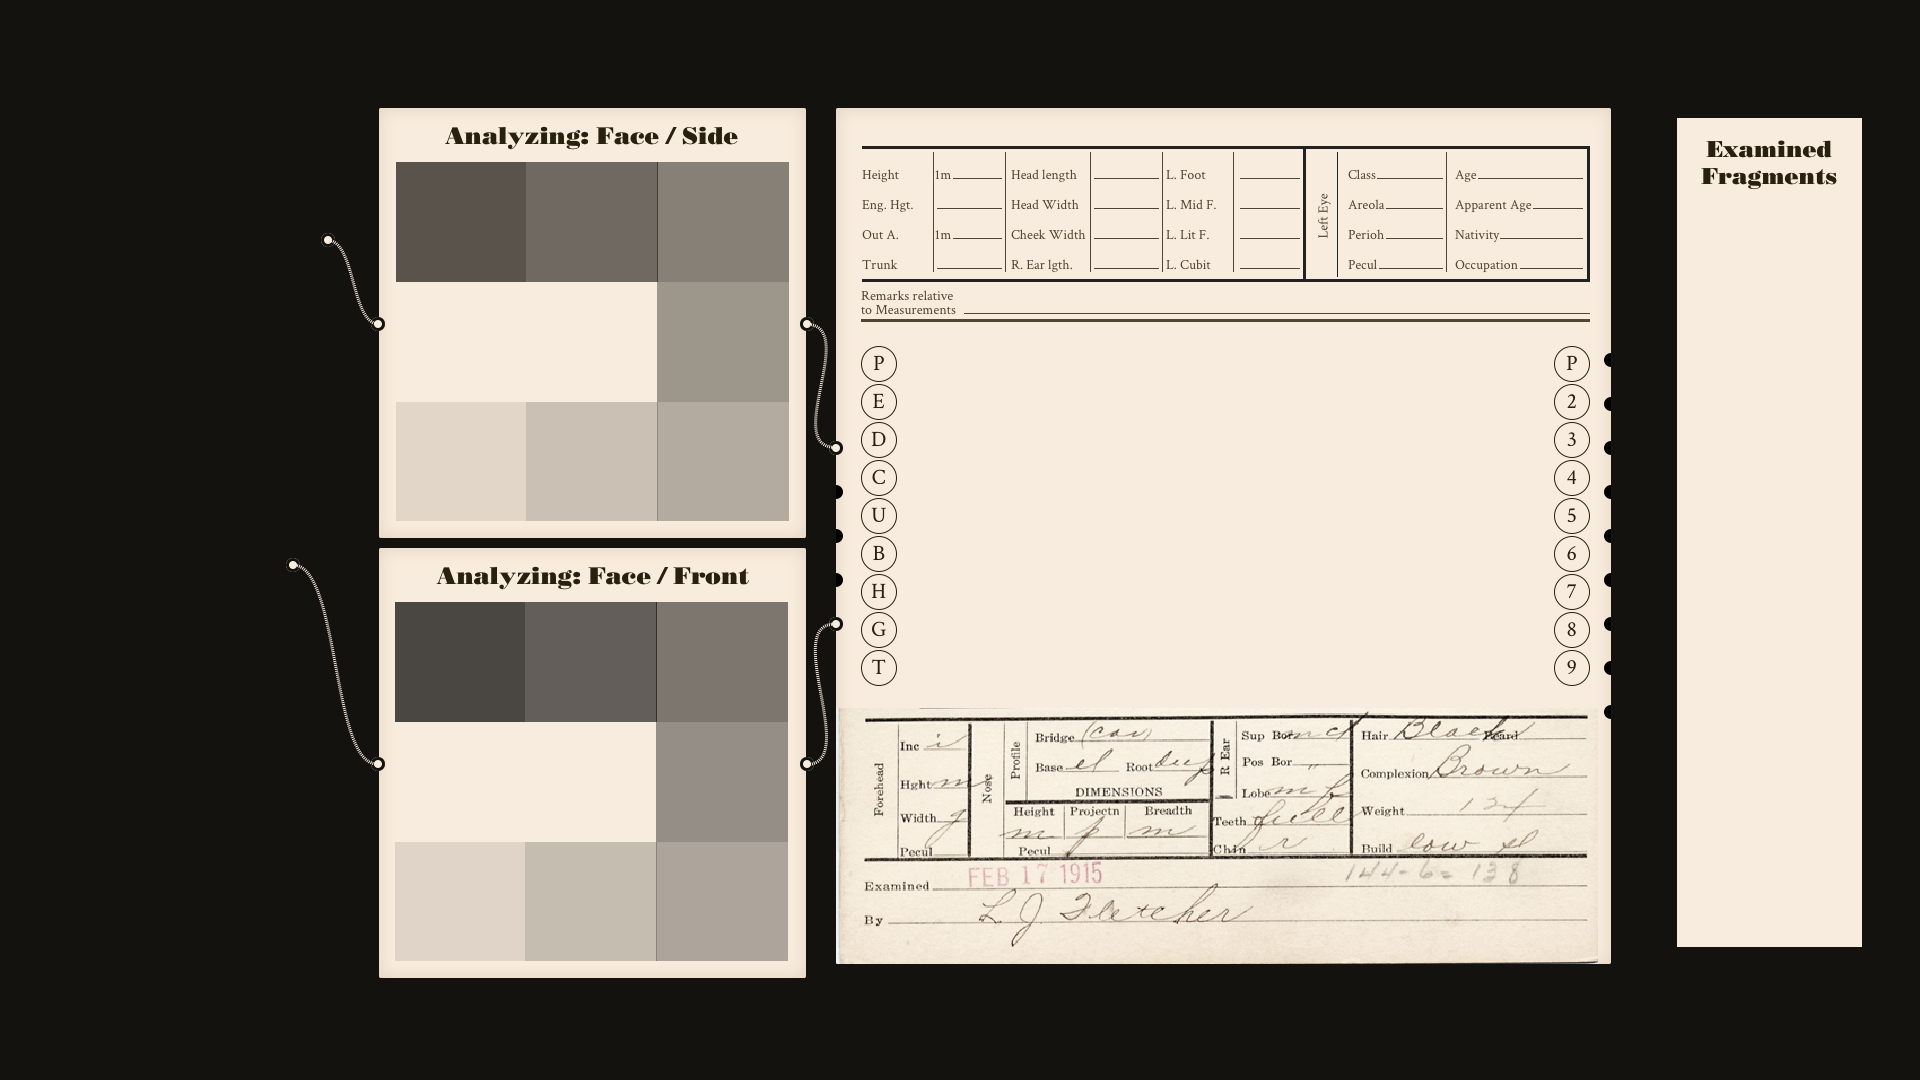 Analyzing: Face / Side
Analyzing: Face / Front
Height 1m Head length L. Foot Class Age
Eng. Hgt. Head Width L. Mid F. Areola Apparent Age
Out A. 1m Cheek Width L. Lit F. Perioh Nativity
Trunk R. Ear lgth. L. Cubit Pecul Occupation
Left Eye
Remarks relative
to Measurements
P
E
D
C
U
B
H
G
T
P
2
3
4
5
6
7
8
9
Forehead
Inc i
Hght m
Width g
Pecul
Nose
Profile
Bridge (cav)
Base el Root
DIMENSIONS
Height Projectn Breadth
m p m
Pecul
R Ear
Sup Bor
Pos Bor "
Lobe
Teeth full
Chin r
Hair Black Beard
Complexion Brown
Weight 124
Build low sl
144-6= 138
Examined FEB 17 1915
By L J Fletcher
Examined
Fragments